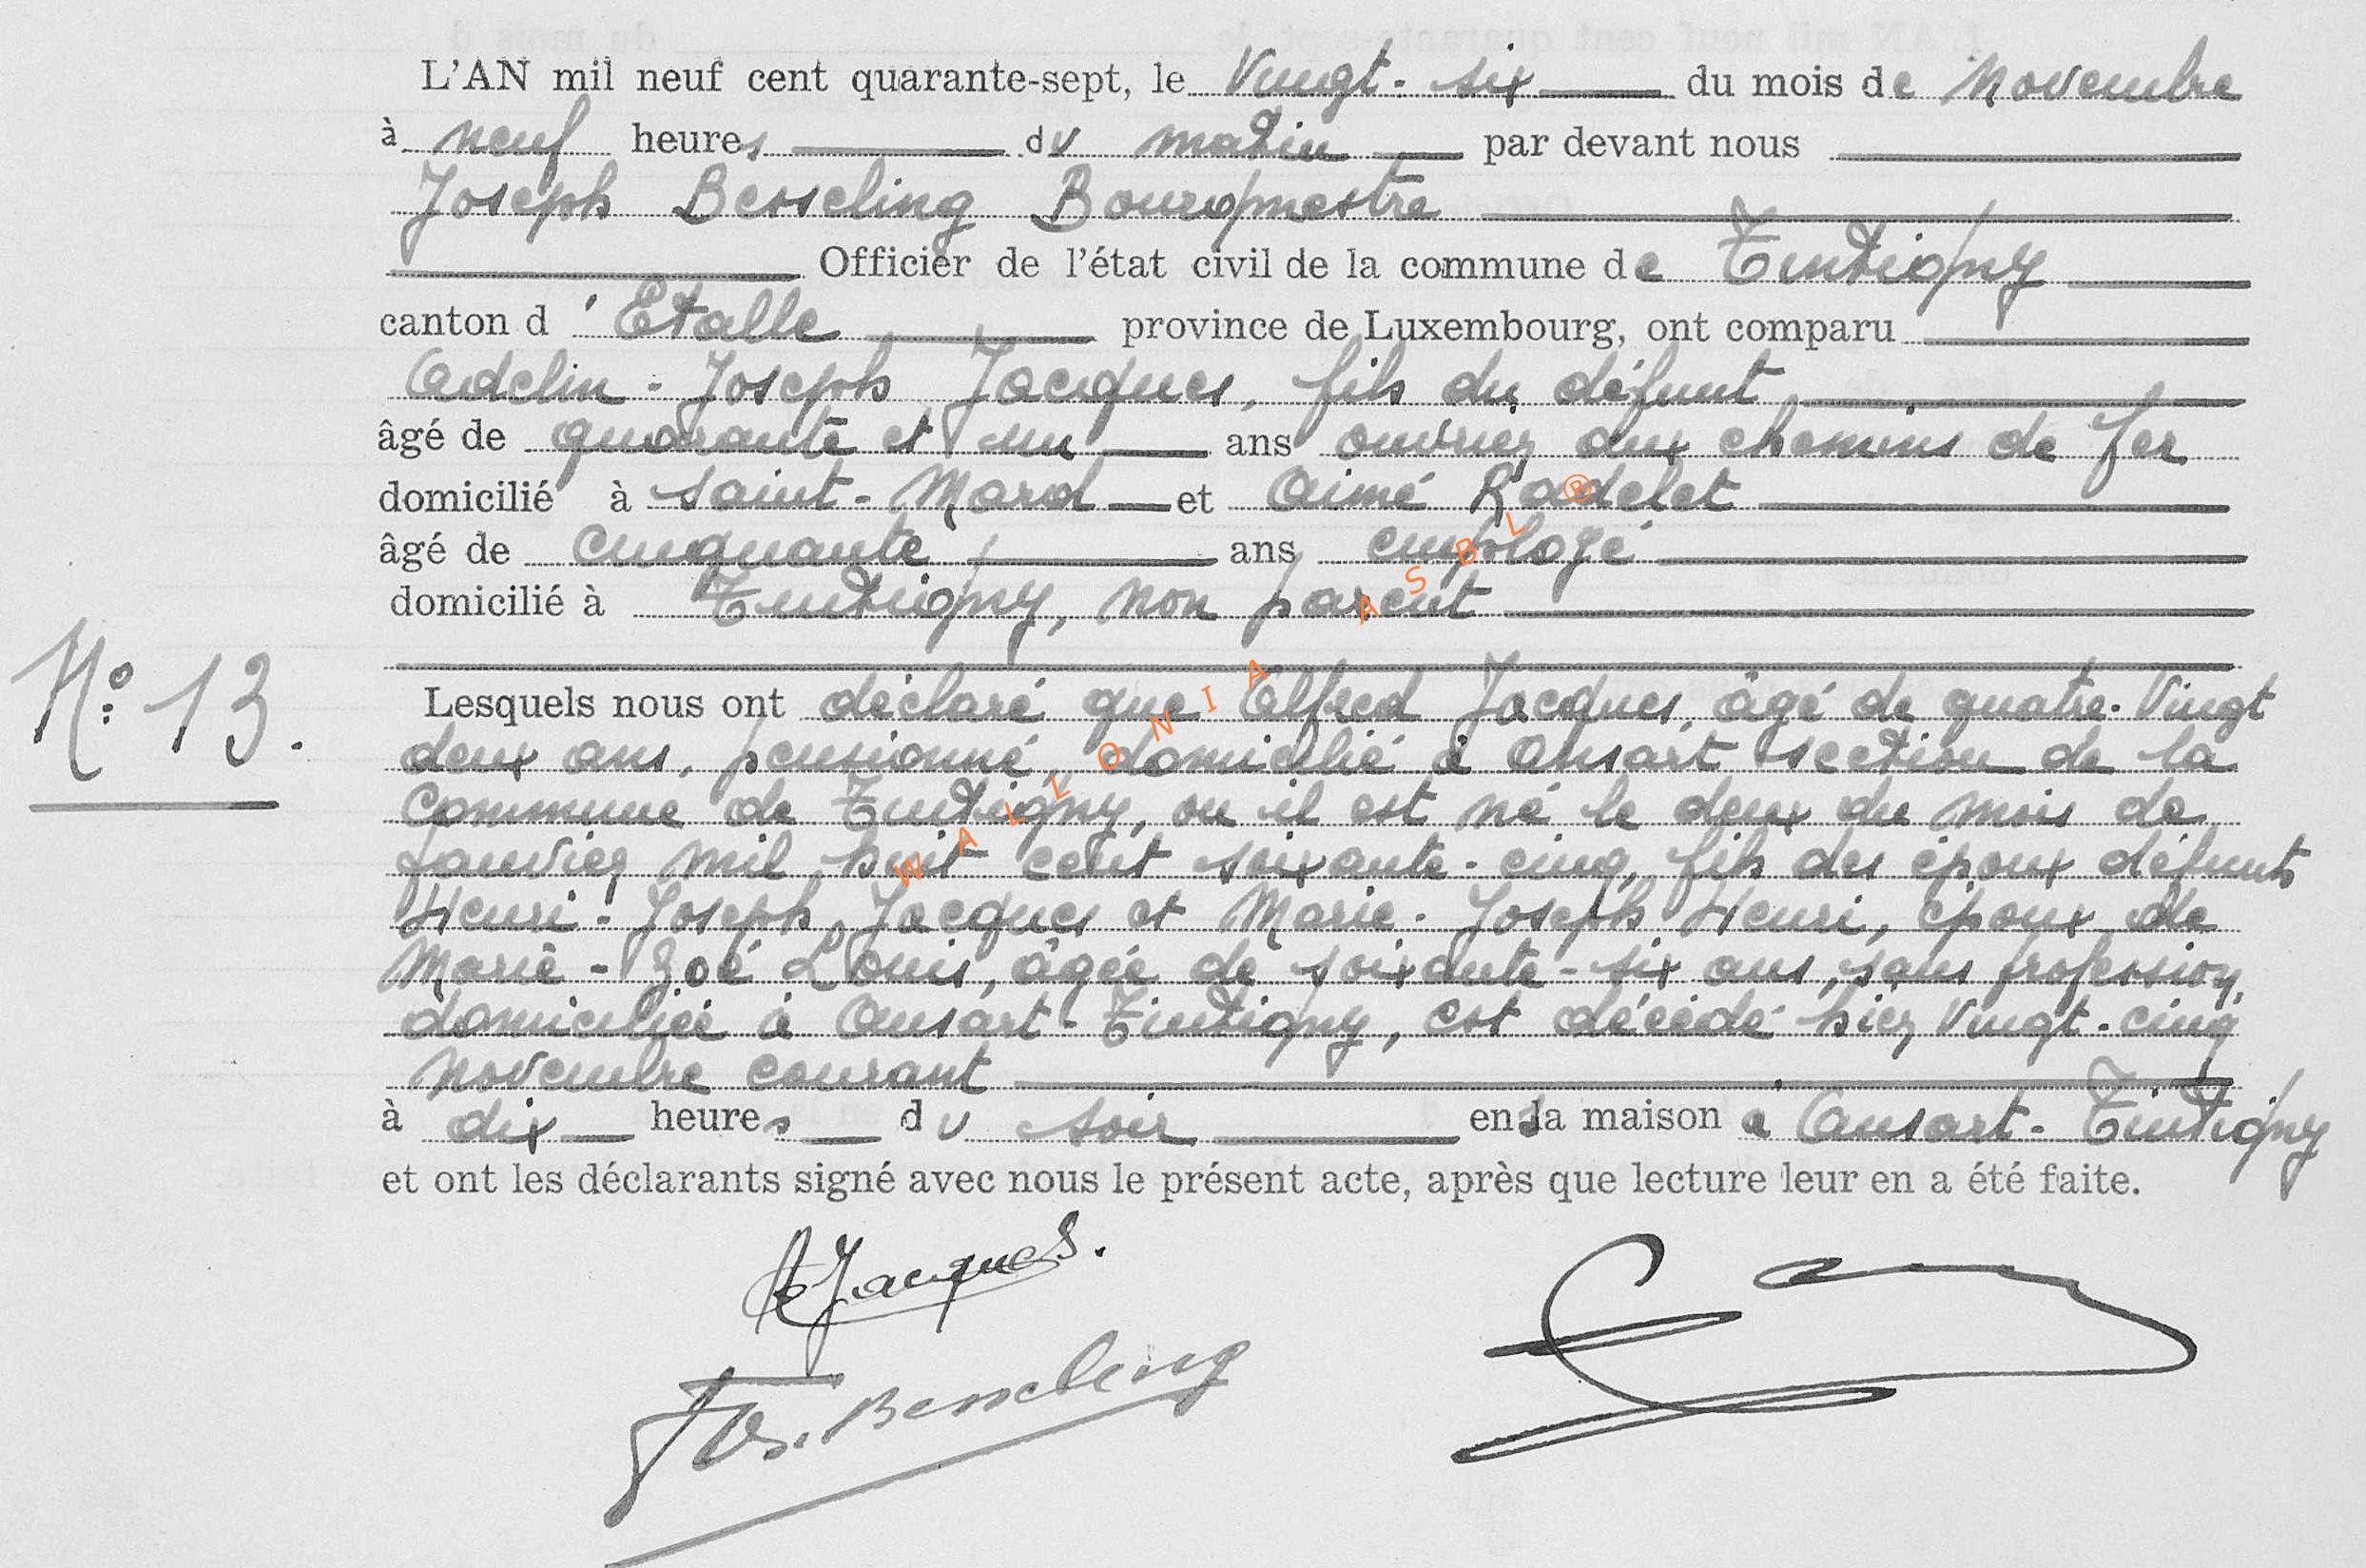 L'AN mil neuf cent quarante-sept, le Vingt-six du mois de Novembre
à neuf heures du matin par devant nous
Joseph Besseling Bourgmestre
Officier de l'état civil de la commune de Tintigny
canton d'Etalle province de Luxembourg, ont comparu
Adelin-Joseph Jacques, fils du défunt
âgé de quarante et un ans ouvrier aux chemins de fer
domicilié à Saint-Mard et Aimé Radelet
âgé de cinquante ans employé
domicilié à Tintigny, non parent
N° 13.
Lesquels nous ont déclaré que Alfred Jacques, âgé de quatre-Vingt
deux ans, pensionné, domicilié à Ansart section de la
Commune de Tintigny, ou il est né le deux du mois de
Janvier mil huit cent soixante-cinq, fils des époux défunts
Henri-Joseph Jacques et Marie-Joseph Henri, époux de
Marie-Zoé Louis, âgée de soixante-six ans, sans profession,
domiciliée à Ansart-Tintigny, est décédé hier, Vingt-cinq
novembre courant
à dix heures du soir en sa maison à Ansart-Tintigny
et ont les déclarants signé avec nous le présent acte, après que lecture leur en a été faite.
A Jacques.
Jos. Besseling
WALLONIA ASBL ®